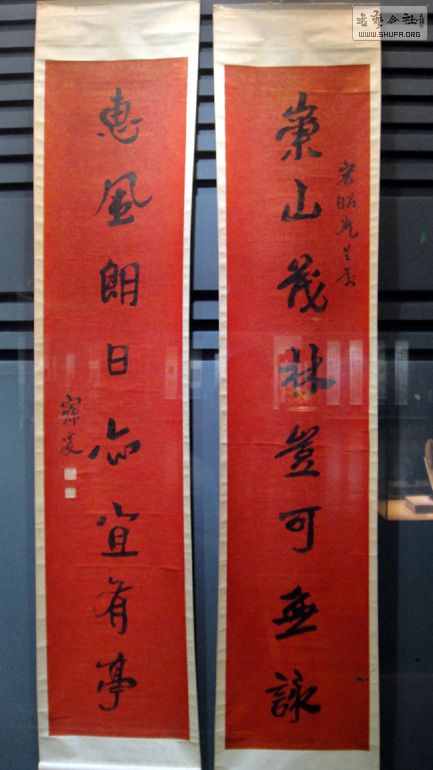 書藝公社
WWW.SHUFA.ORG
崇山茂林豈可無詠
先生
惠風朗日亦宜有亭
寐叟